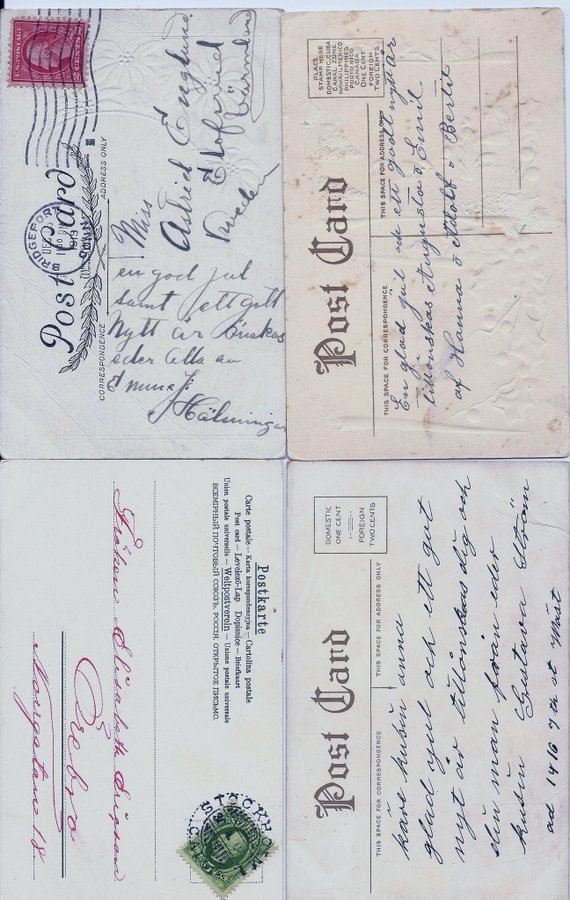 Post Card
ADDRESS ONLY
CORRESPONDENCE
BRIDGEPORT
Miss
Astrid Englund
Sweden
en god jul
samt ett gott
Nytt år önskas
eder alla av
Hälningar
PLACE
STAMP HERE
DOMESTIC, CUBA
CANAL ZONE
HAWAII, MEXICO
PHILIPPINES
PORTO RICO
CANADA
ONE CENT
FOREIGN
TWO CENTS
Post Card
THIS SPACE FOR ADDRESS ONLY
THIS SPACE FOR CORRESPONDENCE
En glad jul och ett godt nytt år
tillönskas Augusta o Emil
af Hanna o Adolf o Bertil
Postkarte
Carte postale — Karta korespondencyjna — Cartolina postale
Post card — Levelező-Lap Dopisnice — Briefkaart
Union postale universelle — Weltpostverein — Unione postale universale
ВСЕМІРНЫЙ ПОЧТОВЫЙ СОЮЗЪ. РОССІЯ. ОТКРЫТОЕ ПИСЬМО.
Fröken Elisabeth
Örebro
18
STOCKHOLM
DOMESTIC
ONE CENT
FOREIGN
TWO CENTS
Post Card
THIS SPACE FOR ADDRESS ONLY
THIS SPACE FOR CORRESPONDENCE
käre kusin anna
glad ajul och ett gut
nyt år tillönskas dig och
din man från eder
kusin Gustava Ström